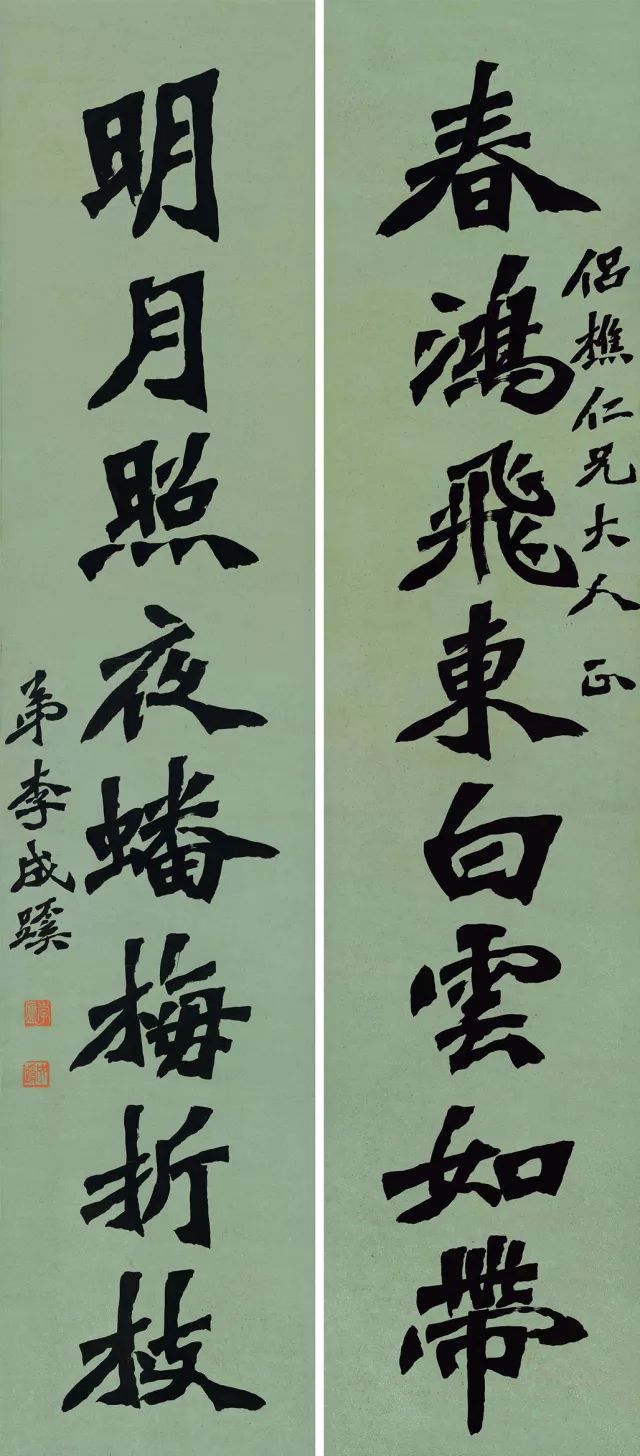 侶樵仁兄大人正
春鴻飛東白雲如帶
明月照夜蟠梅折枝
弟李成蹊